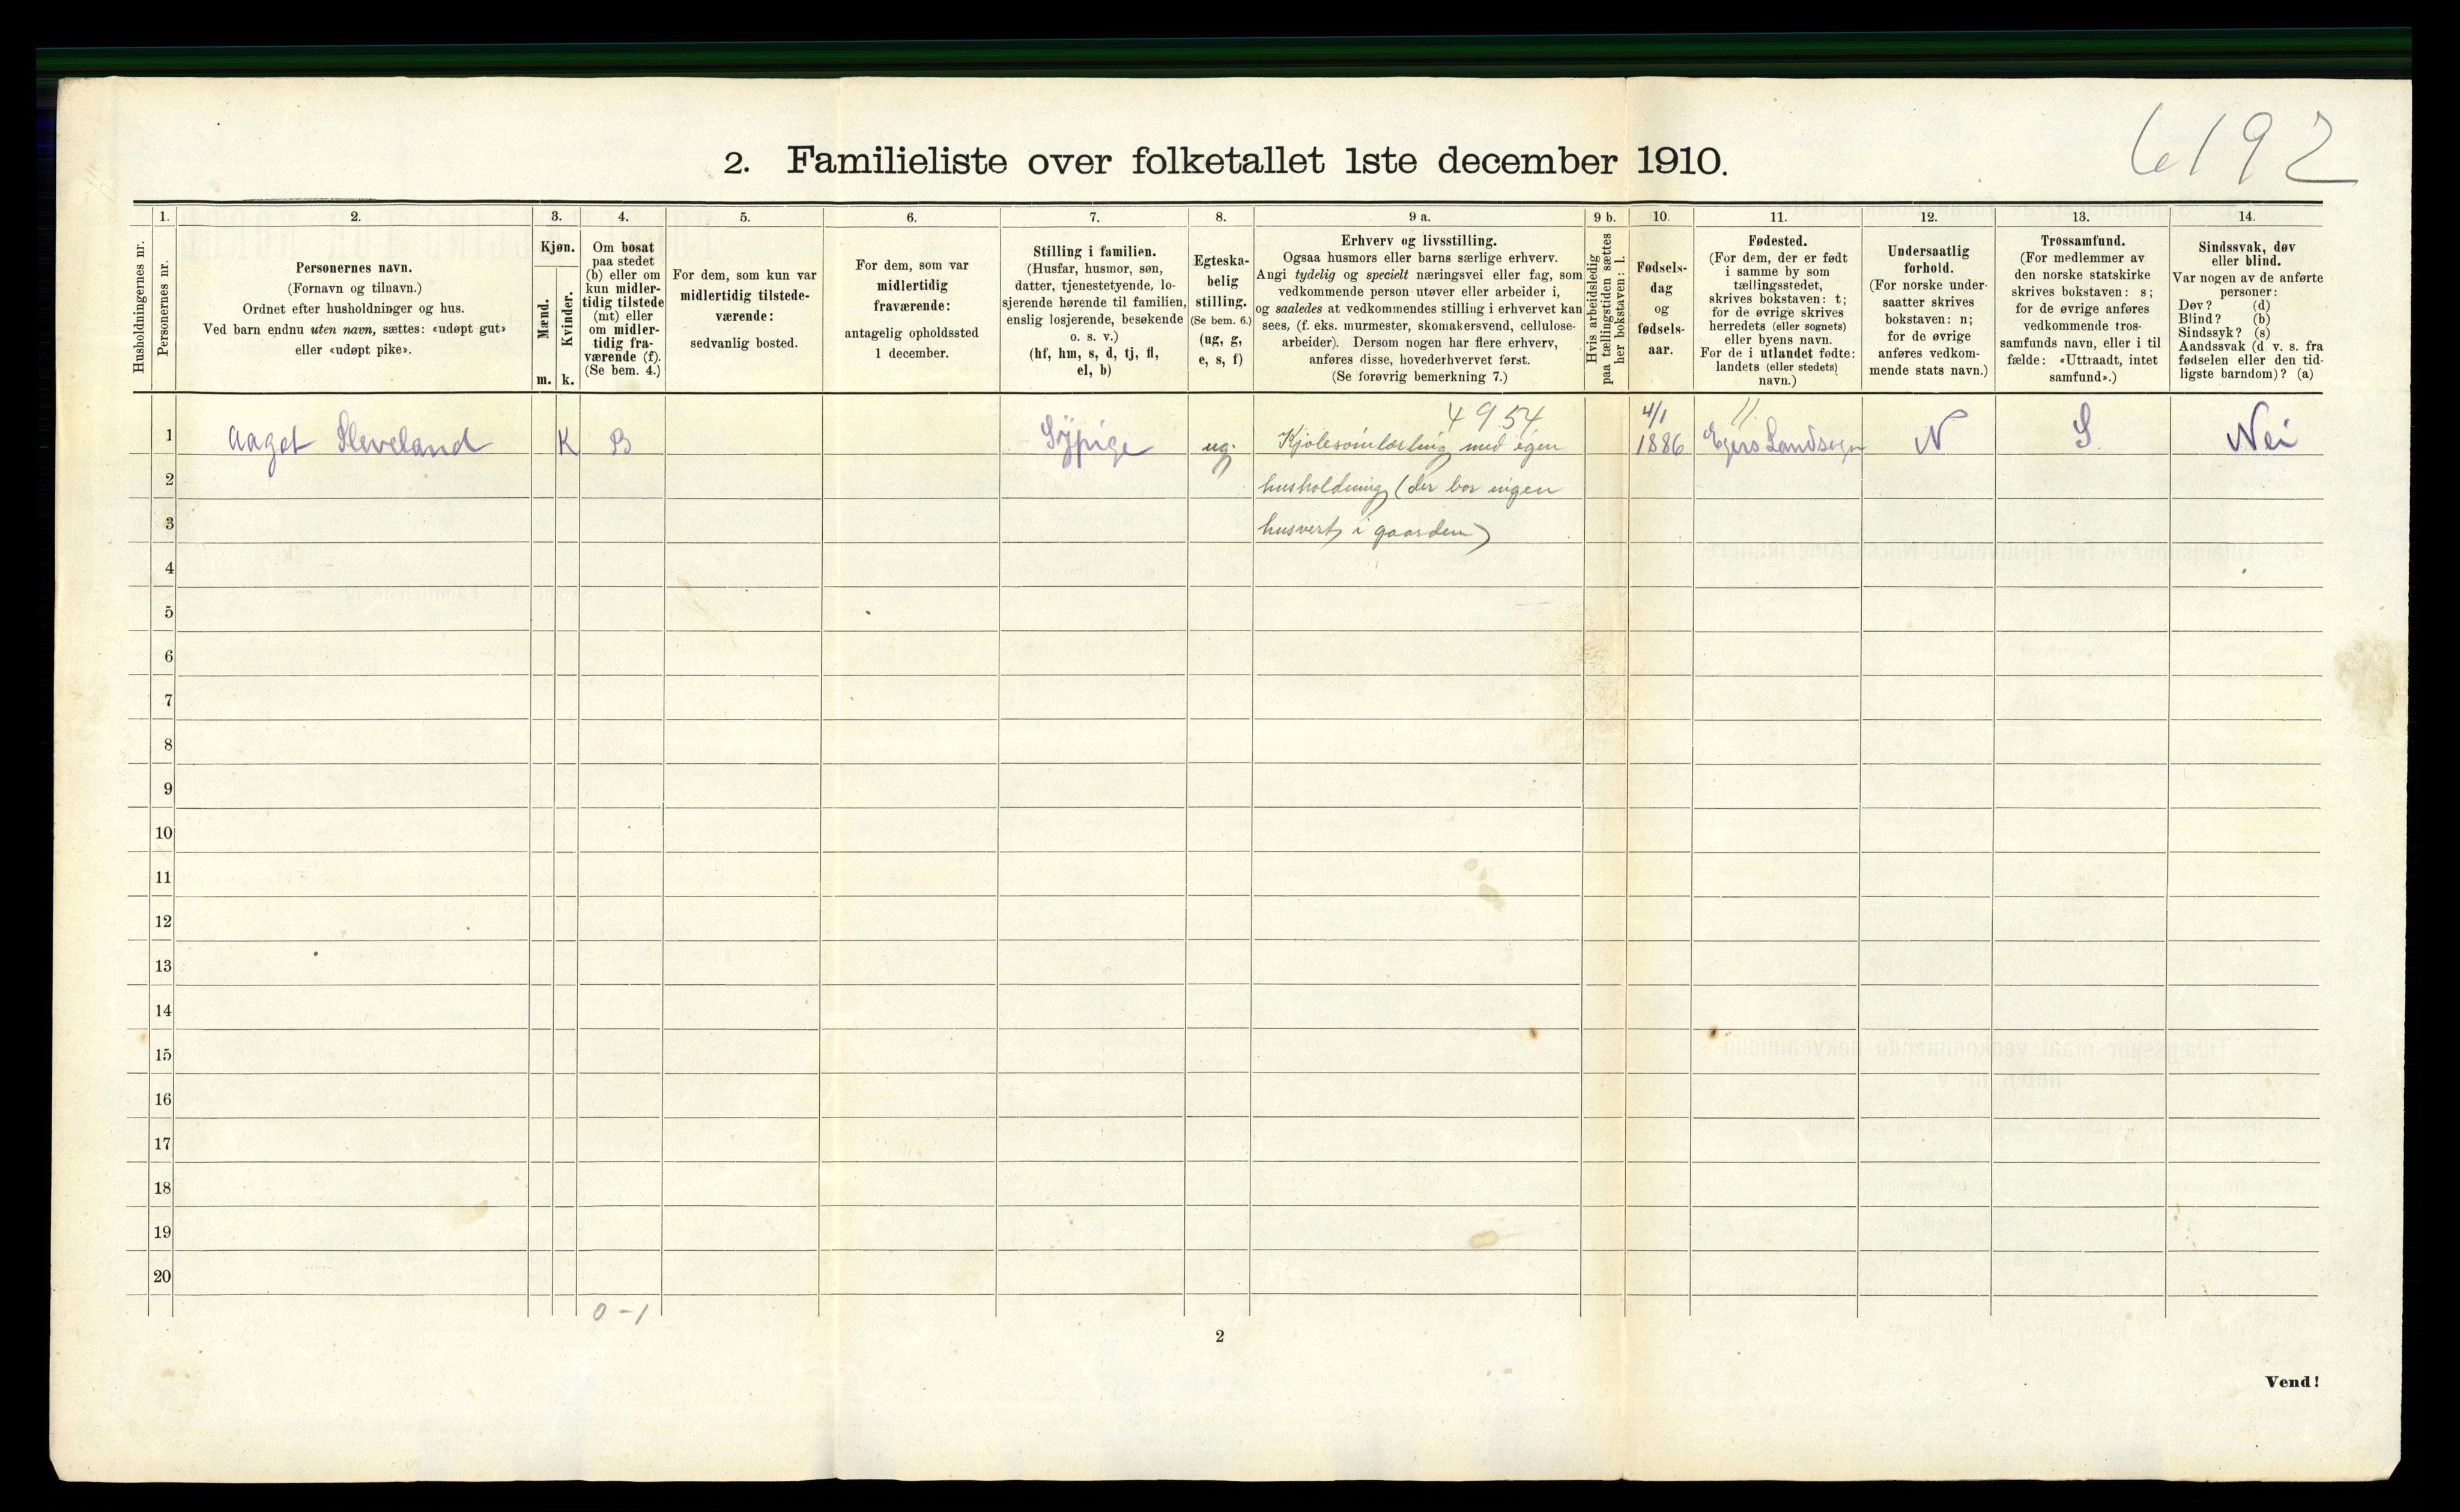 6192
2. Familieliste over folketallet 1ste december 1910.
Husholdningernes nr.
1.
Personernes nr.
2.
Personernes navn.
(Fornavn og tilnavn.)
Ordnet efter husholdninger og hus.
Ved barn endnu uten navn, sættes: «udøpt gut»
eller «udøpt pike».
3.
Kjøn.
Mænd.
Kvinder.
m. k.
4.
Om bosat
paa stedet
(b) eller om
kun midler-
tidig tilstede
(mt) eller
om midler-
tidig fra-
værende (f).
(Se bem. 4.)
5.
For dem, som kun var
midlertidig tilstede-
værende:
sedvanlig bosted.
6.
For dem, som var
midlertidig
fraværende:
antagelig opholdssted
1 december.
7.
Stilling i familien.
(Husfar, husmor, søn,
datter, tjenestetyende, lo-
sjerende hørende til familien,
enslig losjerende, besøkende
o. s. v.)
(hf, hm, s, d, tj, fl,
el, b)
8.
Egteska-
belig
stilling.
(Se bem. 6.)
(ug, g,
e, s, f)
9 a.
Erhverv og livsstilling.
Ogsaa husmors eller barns særlige erhverv.
Angi tydelig og specielt næringsvei eller fag, som
vedkommende person utøver eller arbeider i,
og saaledes at vedkommendes stilling i erhvervet kan
sees, (f. eks. murmester, skomakersvend, cellulose-
arbeider). Dersom nogen har flere erhverv,
anføres disse, hovederhvervet først.
(Se forøvrig bemerkning 7.)
9 b.
Hvis arbeidsledig
paa tællingstiden sættes
her bokstaven: l.
10.
Fødsels-
dag
og
fødsels-
aar.
11.
Fødested.
(For dem, der er født
i samme by som
tællingsstedet,
skrives bokstaven: t;
for de øvrige skrives
herredets (eller sognets)
eller byens navn.
For de i utlandet fødte:
landets (eller stedets)
navn.)
12.
Undersaatlig
forhold.
(For norske under-
saatter skrives
bokstaven: n;
for de øvrige
anføres vedkom-
mende stats navn.)
13.
Trossamfund.
(For medlemmer av
den norske statskirke
skrives bokstaven: s;
for de øvrige anføres
vedkommende tros-
samfunds navn, eller i til
fælde: «Uttraadt, intet
samfund».)
14.
Sindssvak, døv
eller blind.
Var nogen av de anførte
personer:
Døv? (d)
Blind? (b)
Sindssyk? (s)
Aandssvak (d. v. s. fra
fødselen eller den tid-
ligste barndom)? (a)
4954 4/1 11
1 Aagot Sleveland K B Sÿpige ug. Kjolesömlærling med egen 1886 Egers Landsogn N S Nei
2 husholdning (der bor ingen
3 husvert i gaarden)
4
5
6
7
8
9
10
11
12
13
14
15
16
17
18
19
20
0-1
2
Vend!